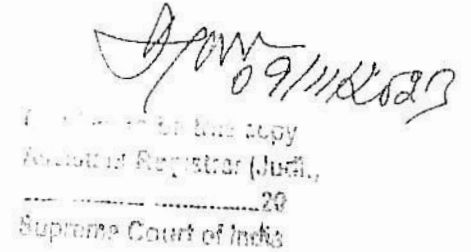 09/11/2023
to be true copy
Assistant Registrar (Judl.,
....................20
Supreme Court of India